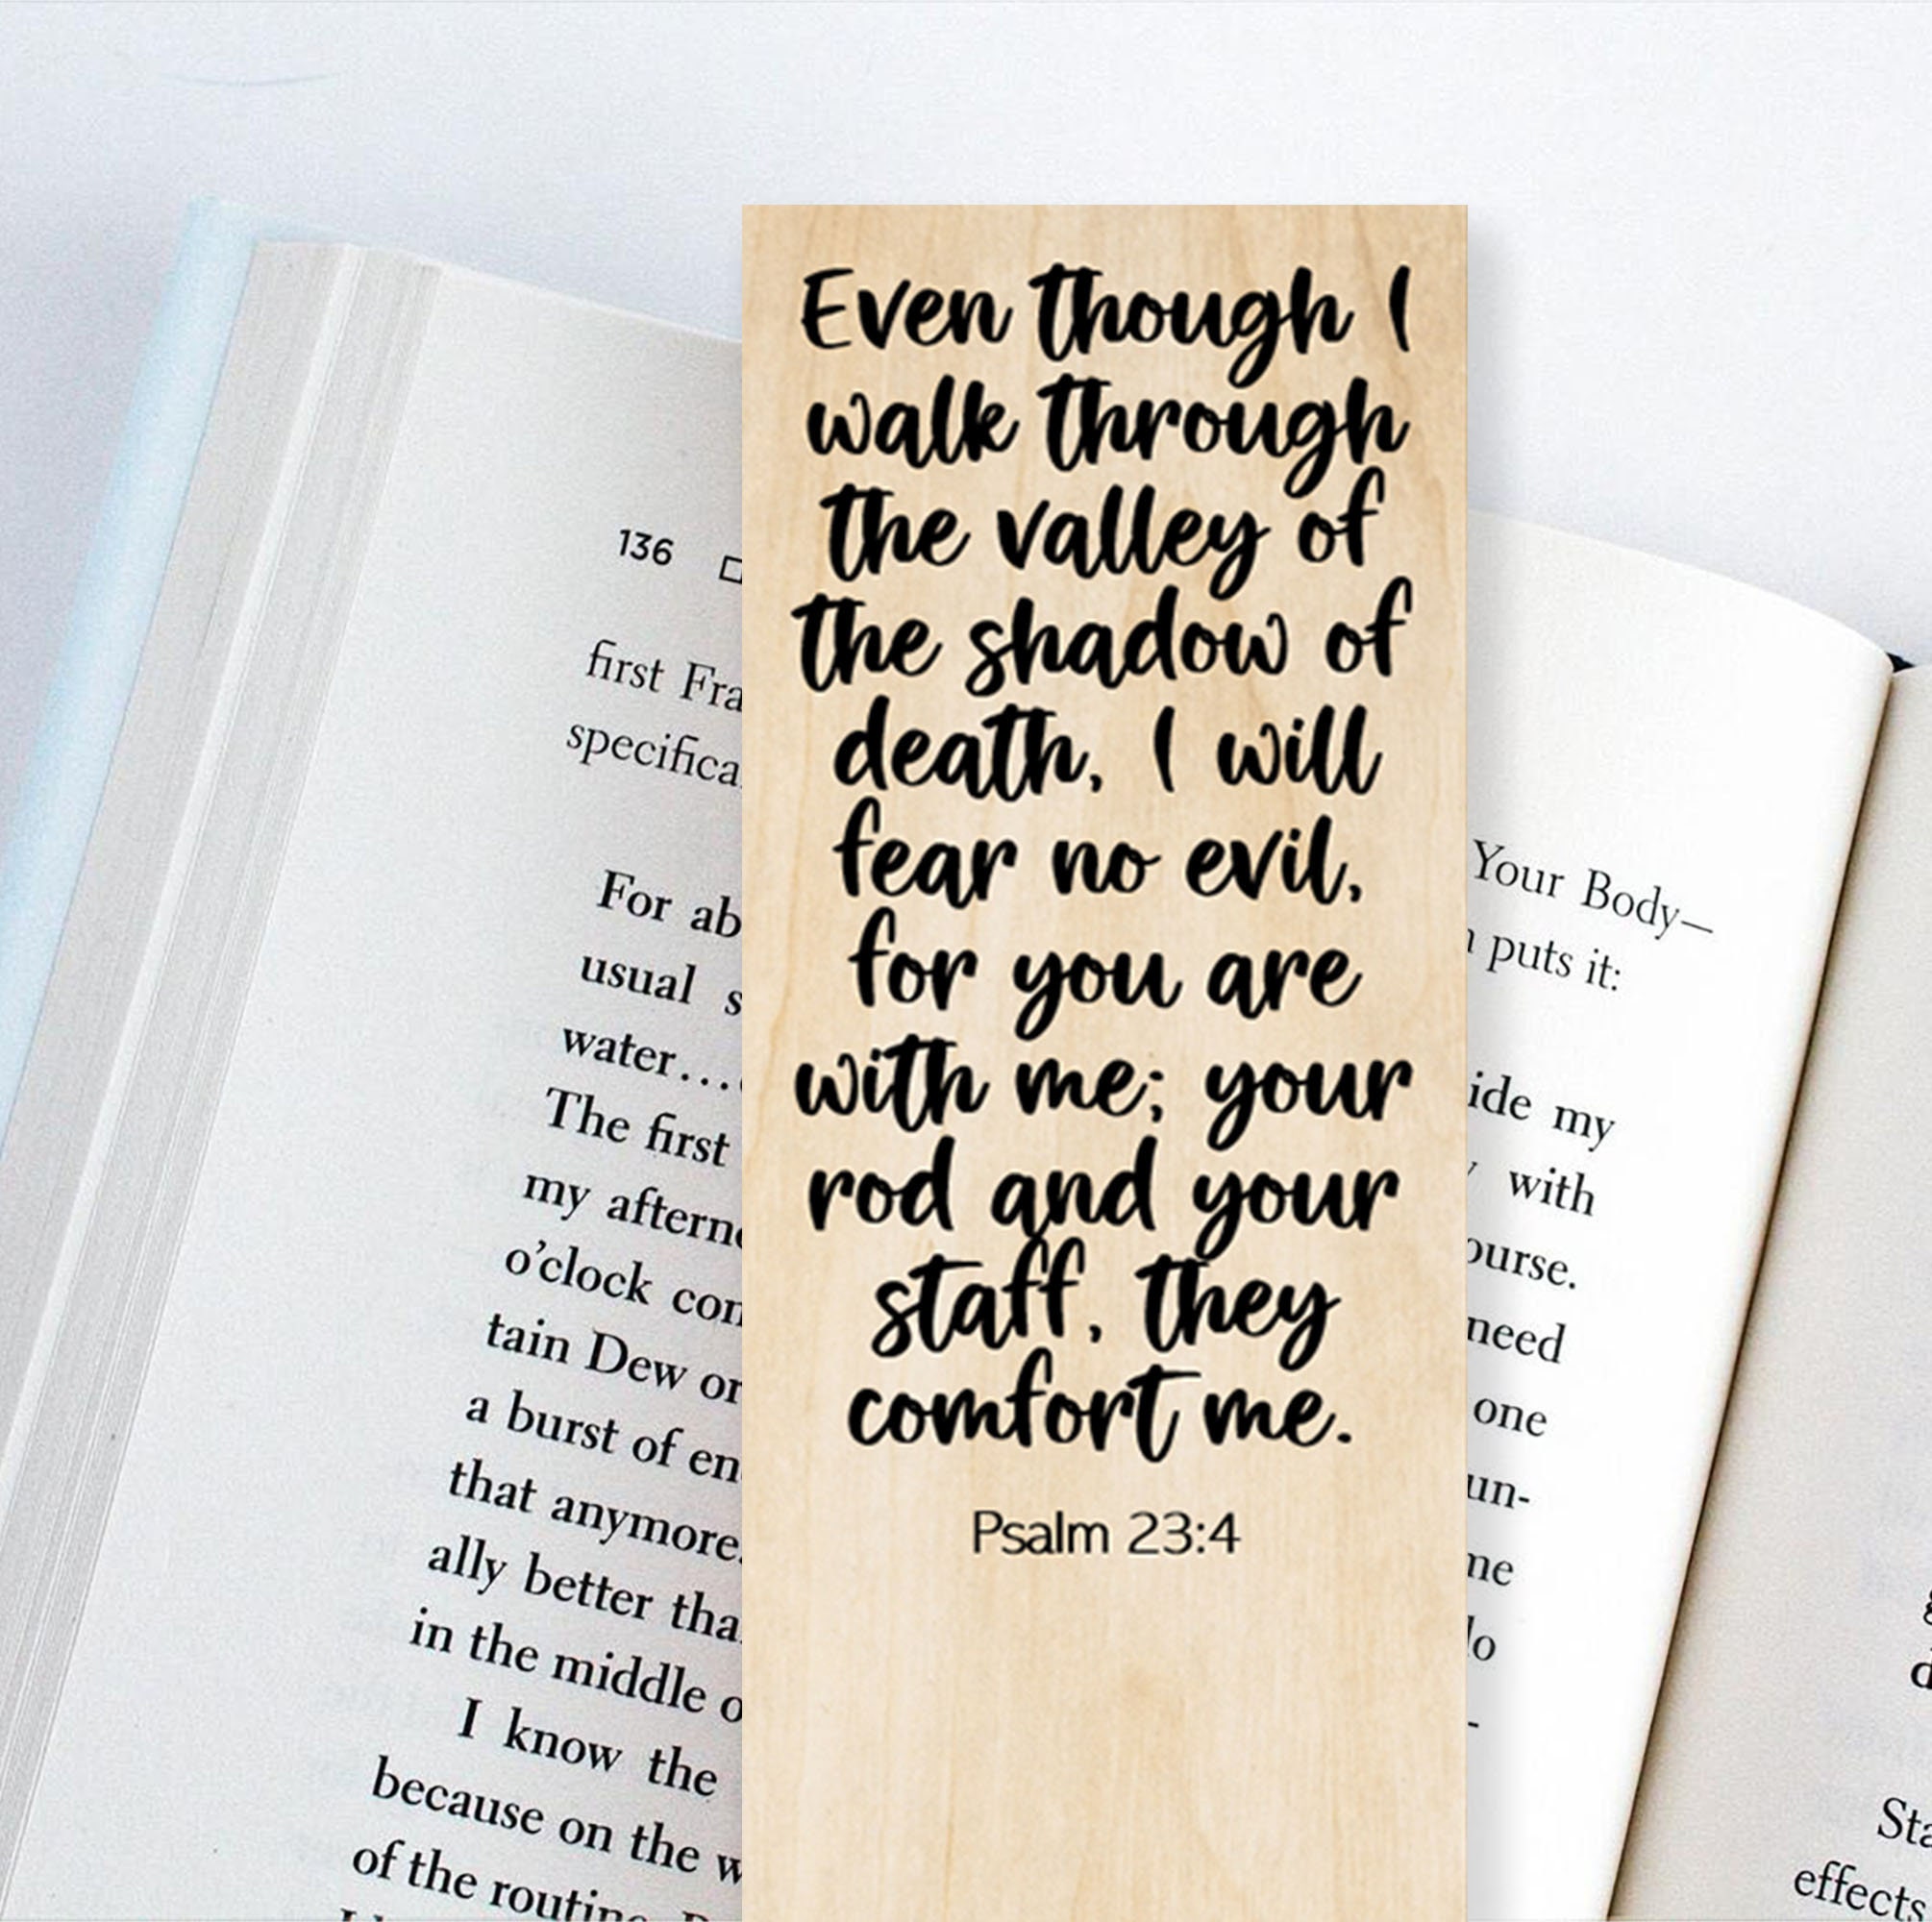 Even though I
walk through
the valley of
the shadow of
death, I will
fear no evil,
for you are
with me; your
rod and your
staff, they
comfort me.
Psalm 23:4
136
first
specifica
For ab
usual s
water...
The first
my aftern
o'clock con
tain Dew or
a burst of en
that anymore.
ally better tha
in the middle o
I know the
because on the w
of the routin
Your Body—
puts it:
ide my
with
ourse.
need
one
un-
me
do
-
Sta
effects